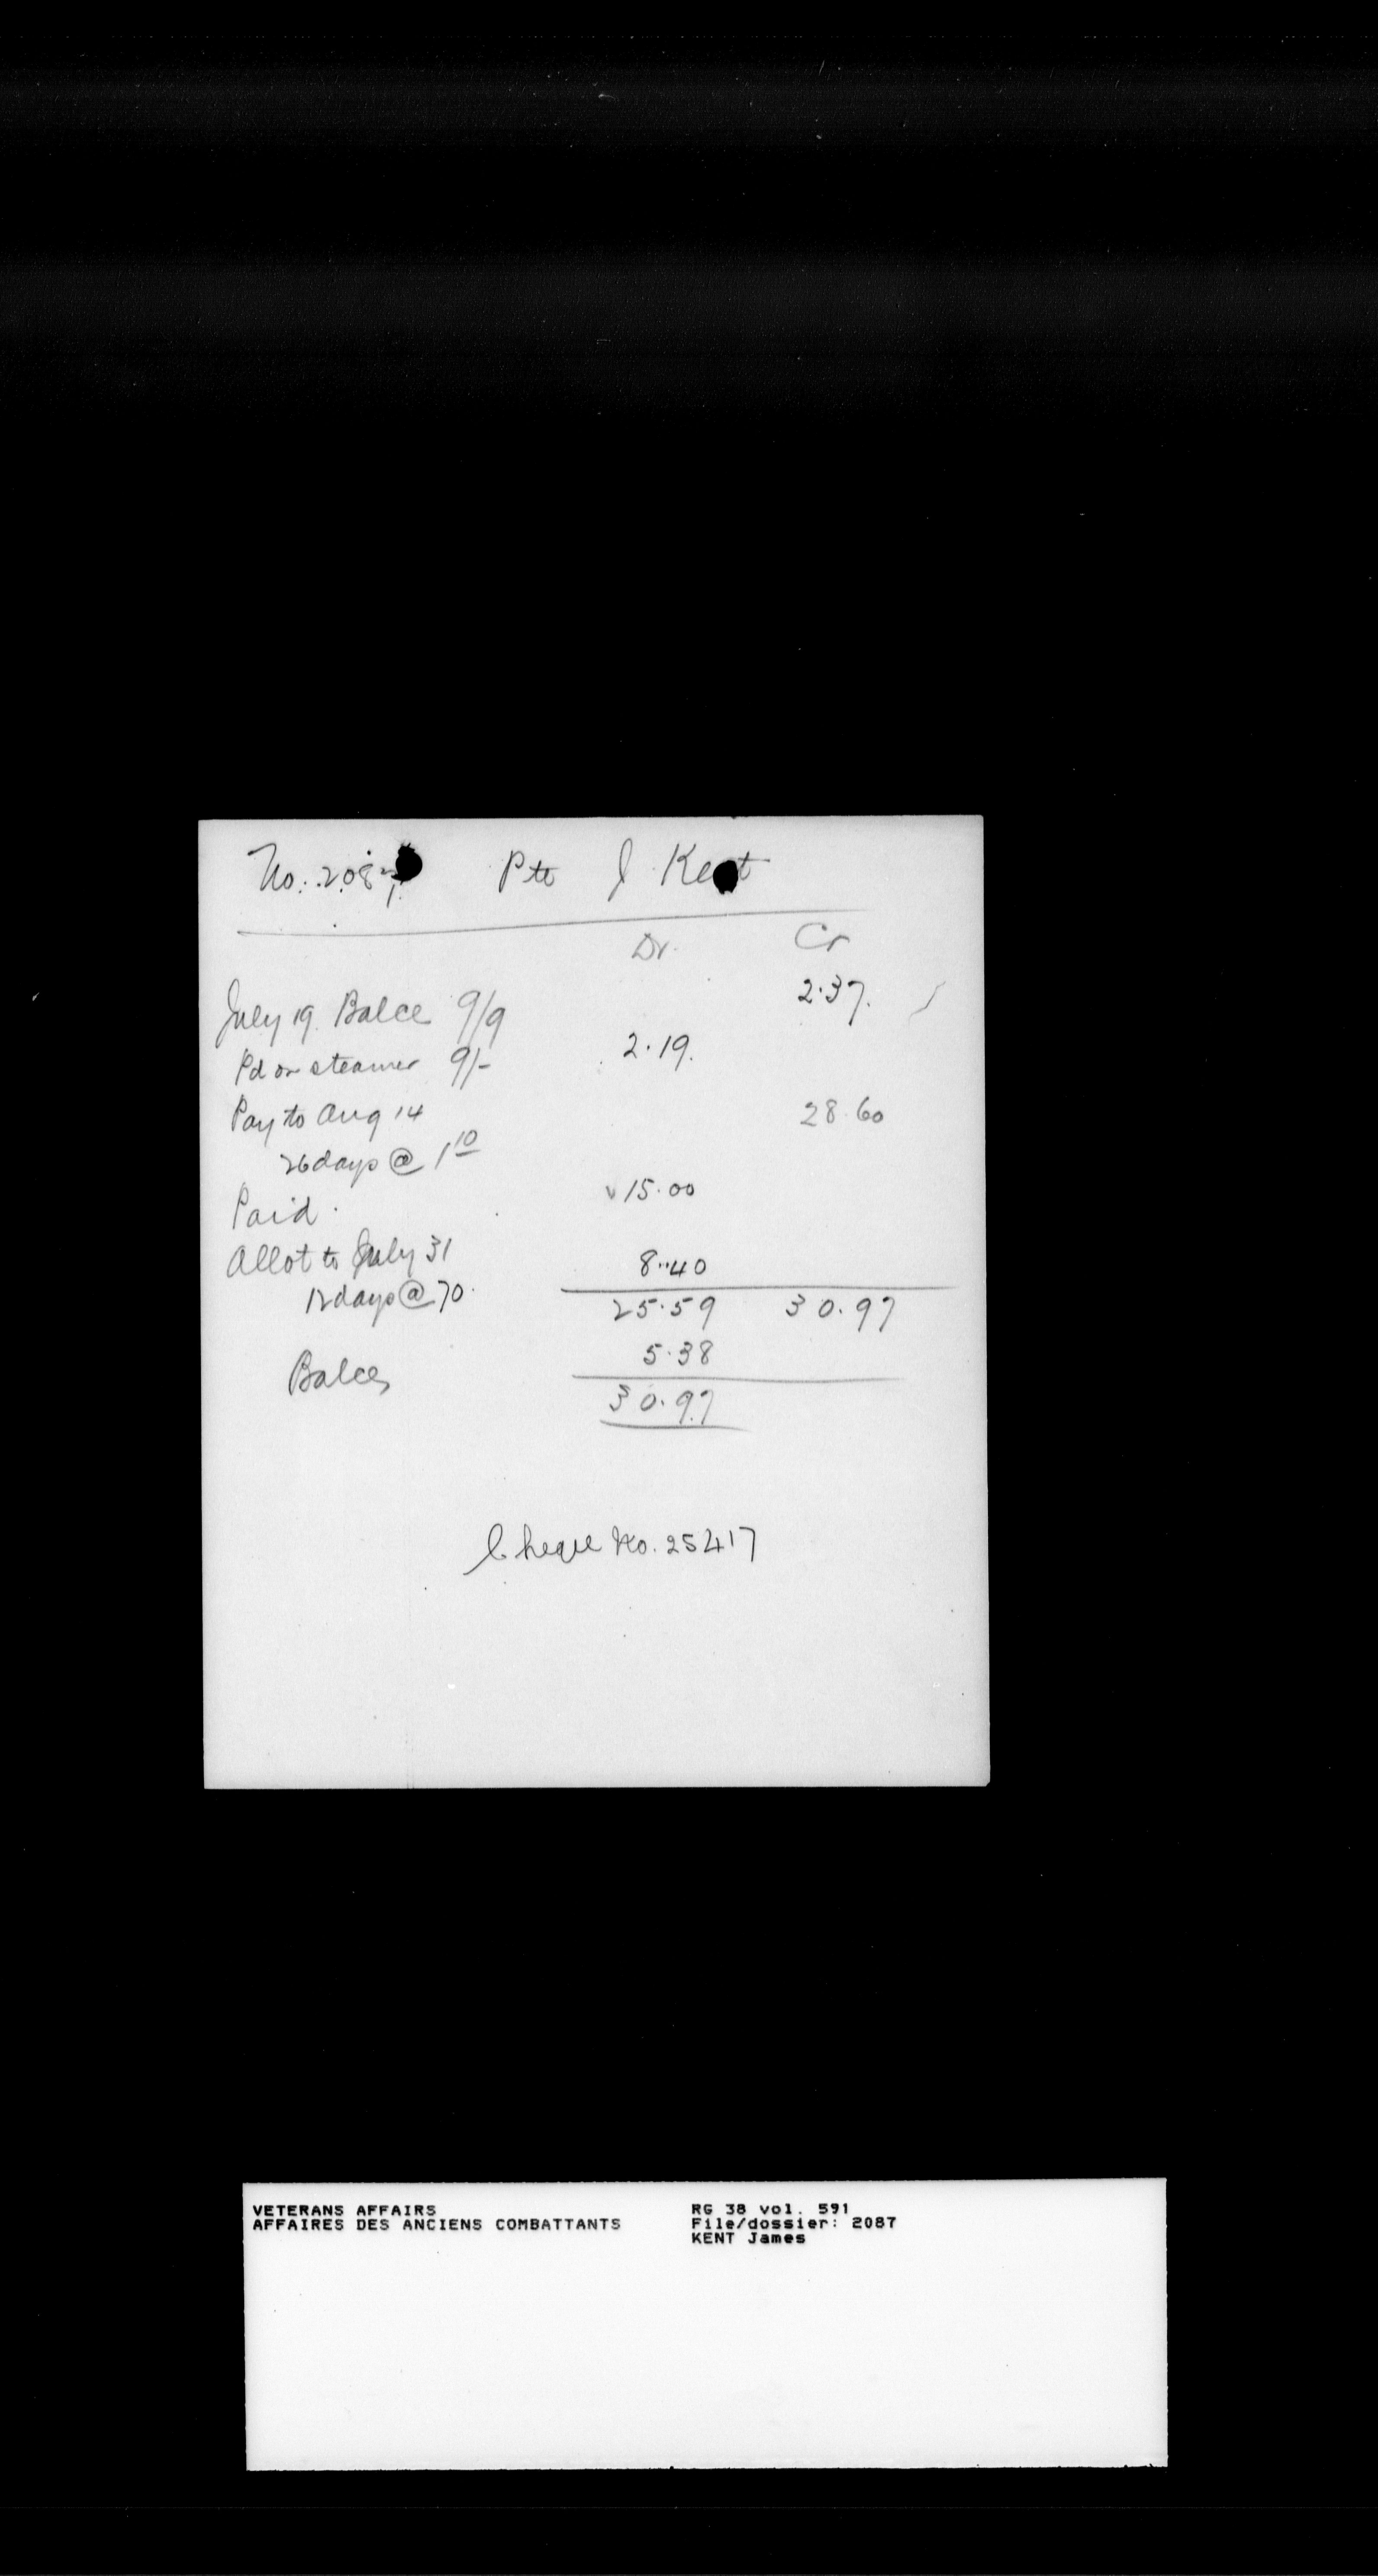 No. 2087 Pte J Kent
Dr. Cr
July 19 Balce 9/9 2.37.
Pd on steamer 9/- 2.19.
Pay to Aug 14 28.60
26 days @ 1 10
Paid. 15.00
Allot to July 31 8.40
12 days @ 70.
25.59 30.97
Balce 5.38
30.97
Cheque No. 25417
VETERANS AFFAIRS RG 38 vol. 591
AFFAIRES DES ANCIENS COMBATTANTS File/dossier: 2087
KENT James